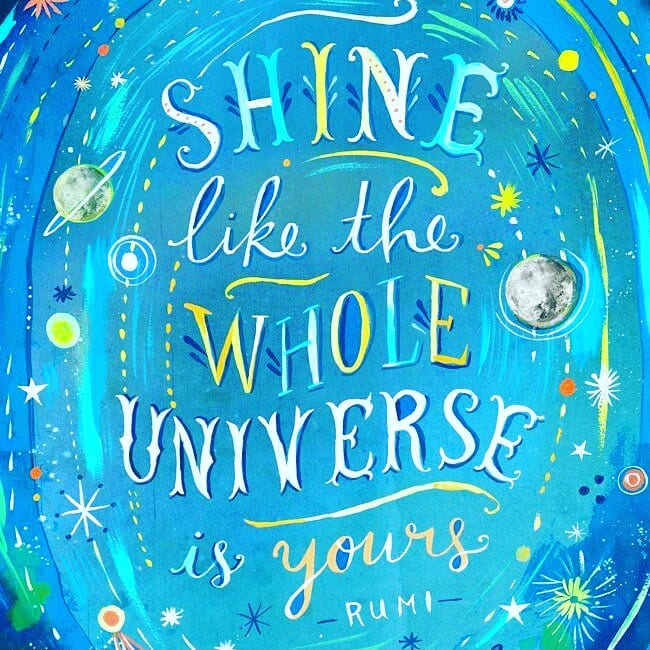 SHINE
like the
WHOLE
UNIVERSE
is yours
- RUMI -